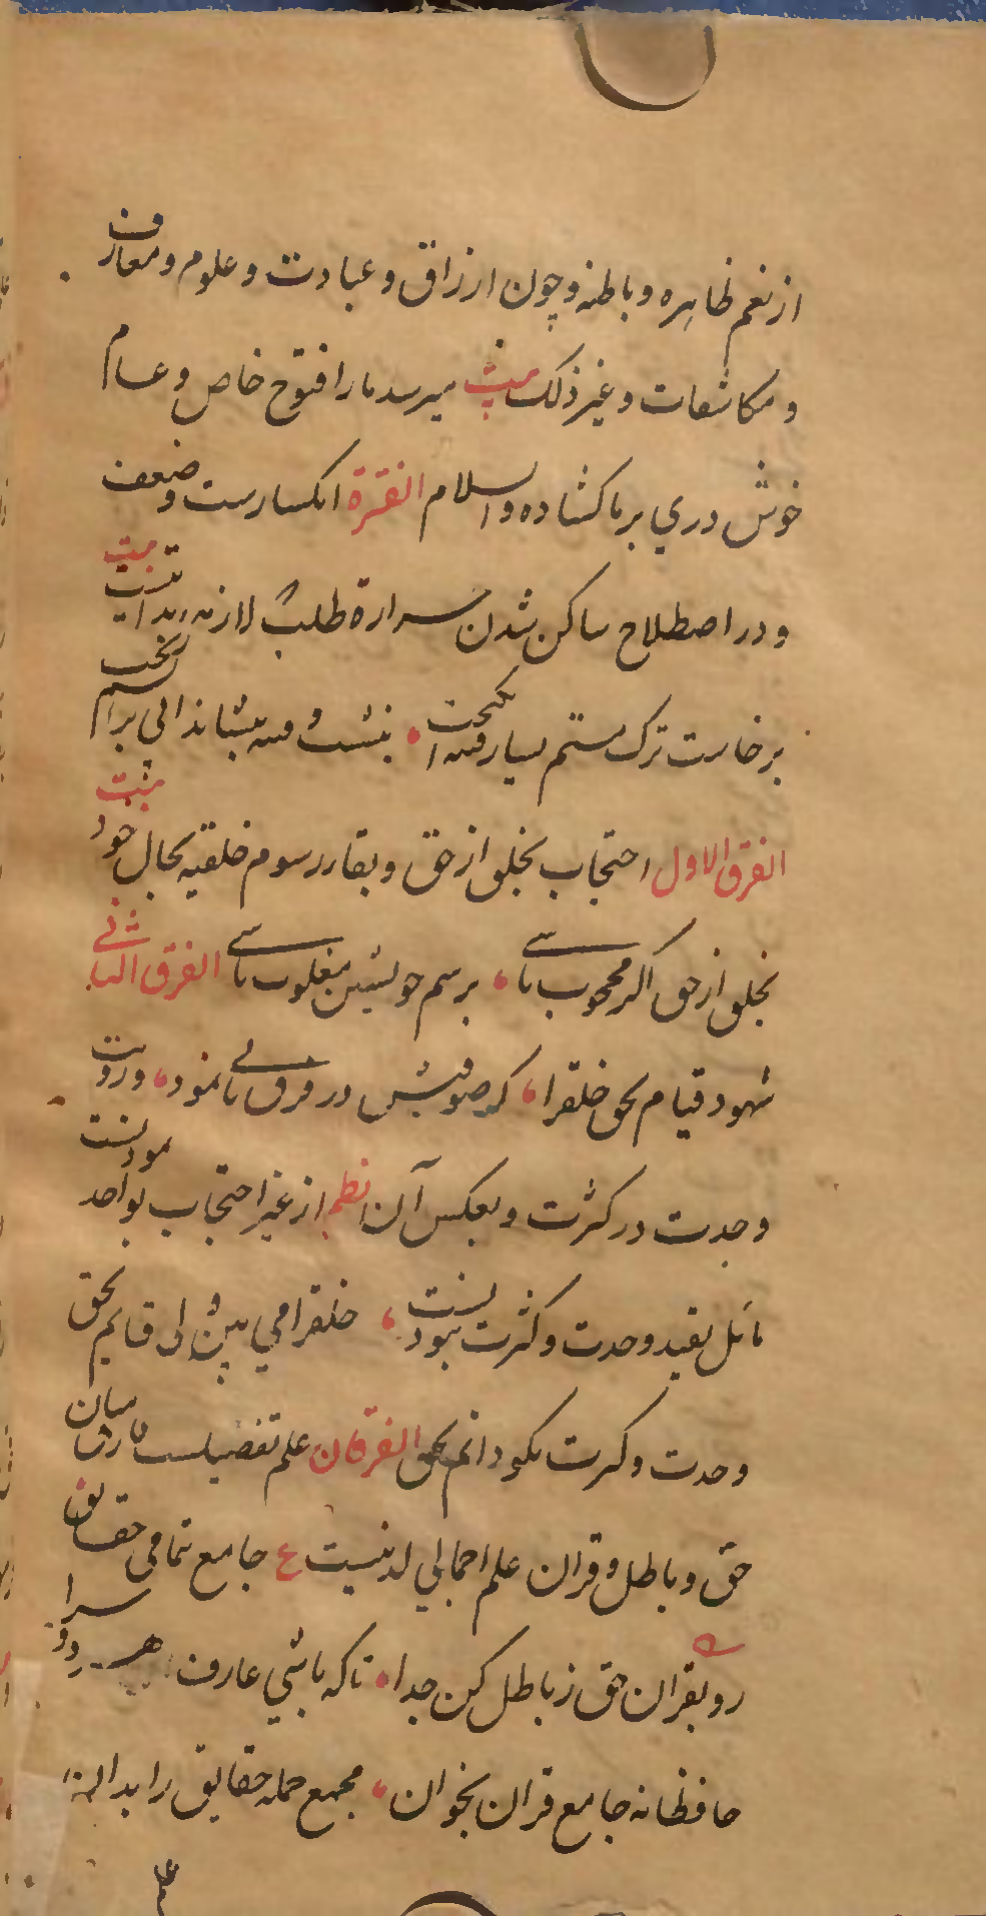 از نعم ظاهره و باطنه و چون ارزاق و عبادت و علوم و معارف
و مکاشفات و غیر ذلک بیت میرسد ما را فتوح خاص و عام
خوش دری بر ما کشاده والسلام الفترة انکسارست و ضعف
و در اصطلاح ساکن شدن حرارة طلب لازمه بدایت بیت
برخاست ترک مستم بنشست و
الفرق الاول احتجاب بخلق از حق و بقا رسوم خلقیه بحال خود بیت
بخلق از حق اکر محجوب باشی برسم خویشتن مغلوب باشی الفرق الثانی
شهود قیام بحق خلقرا در فرق ثانی نمود و رویت
وحدت در کثرت و بعکس آن نظم از غیر احتجاب بواحد نمودنست
مائل بقید وحدت و کثرت نبودنست خلقرا می بین و قایم بحق
وحدت و کثرت نکو دانم بحق الفرقان علم تفصیلست فارق میان
حق و باطل و قران علم اجمالی لدنیست ع جامع تمامی حقایق
رو بقران حق ز باطل کن جدا تا که باشی عارف هر دو سرا
حافظانه جامع قران بخوان مجمع جمله حقایق را بدان
علم